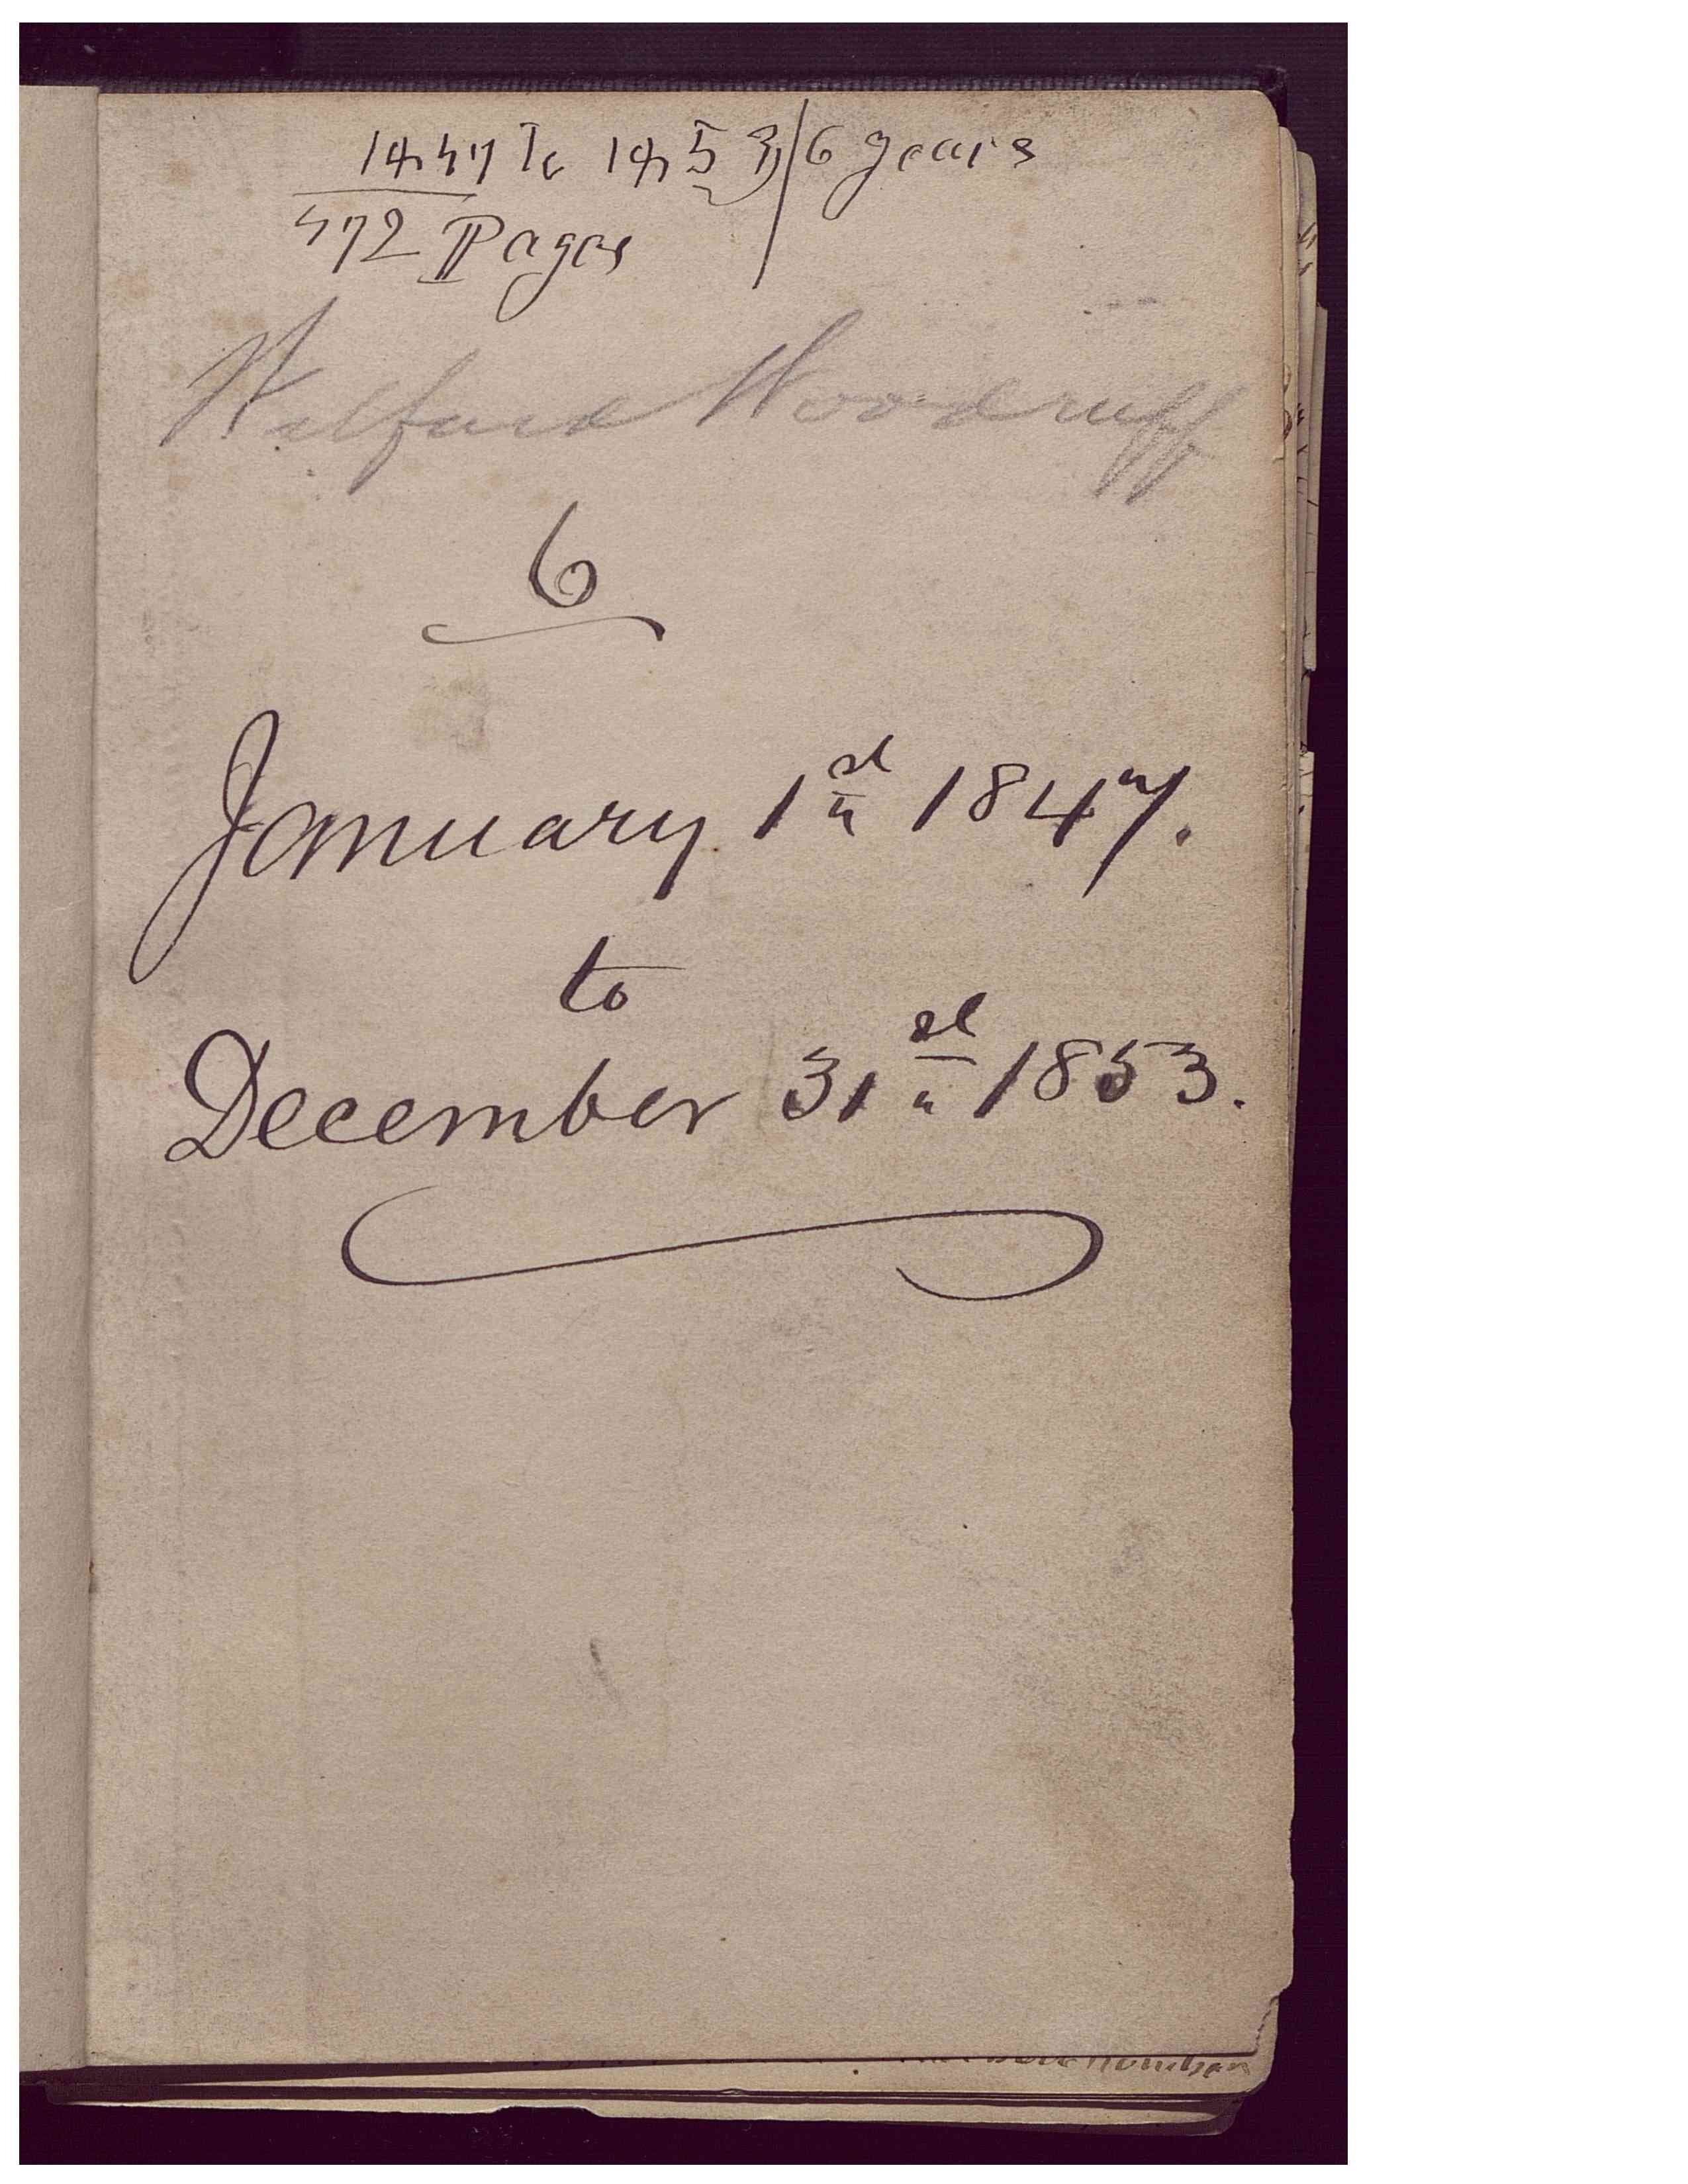 1847 To 1853 / 6 years
472 Pages
Wilford Woodruff
6
January 1st 1847.
to
December 31st 1853.